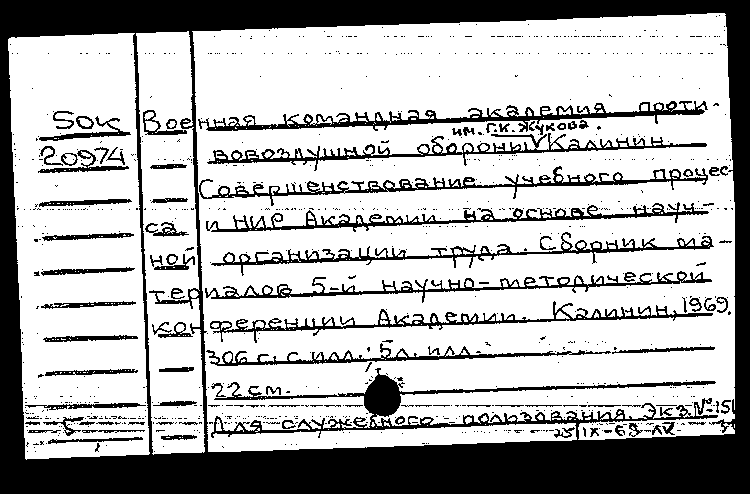 50к Военная командная академия проти-
им. Г.К. Жукова.
20974 вовоздушной обороны Калинин.
Совершенствование учебного процес-
са и НИР Академии на основе науч-
ной организации труда. Сборник ма-
териалов 5-й научно-методической
конференции Академии. Калинин, 1969.
306 с. с илл.; 5 л. илл.
22 см.
Для служебного пользования. Экз. №
25/IX-69